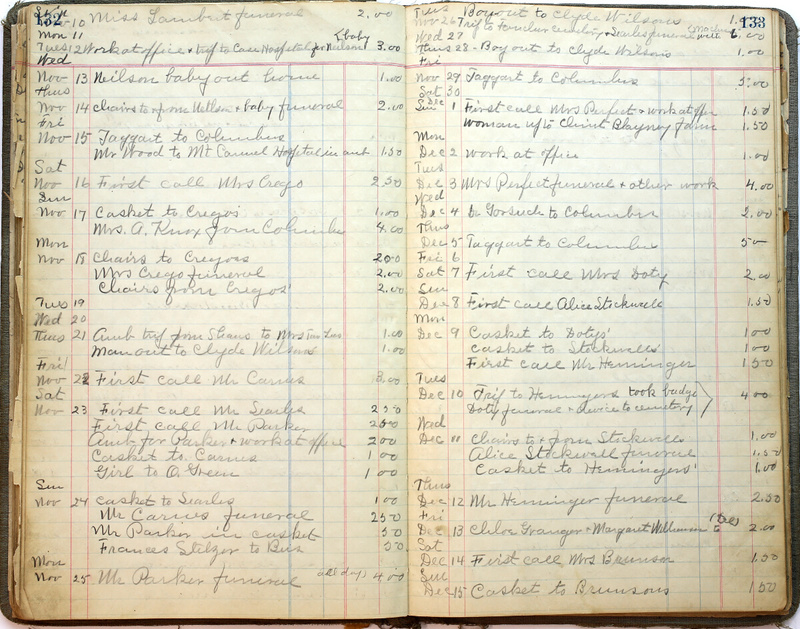 132
10 Miss Lambert funeral 2.00
Mon 11
baby
Tues 12 Work at office & trip to Case Hospital for Neilson 3.00
Wed
Nov 13 Neilson baby out home 1.00
Thus
Nov 14 chairs to & from Neilson & baby funeral 2.00
Fri
Nov 15 Taggart to Columbus
Mr Wood to Mt Carmel Hospital in amb 1.50
Sat
Nov 16 First call Mrs Crego 2.50
Sun
Nov 17 Casket to Cregos 1.00
Mrs. A. Knox from Columbus 4.00
Mon
Nov 18 Chairs to Cregos 2.00
Mrs Crego funeral 2.00
Chairs from Cregos' 2.00
Tues 19
Wed 20
Thus 21 Amb trip from to Mrs 1.00
Man out to Clyde Wilsons 1.00
Fri
Nov 22 First call Mr Carnes 3.00
Sat
Nov 23 First call Mr Searles 2.50
First call Mr Parker 2.50
Amb for Parker & work at office 2.00
Casket to Carnes 1.00
Girl to O. Green 1.00
Sun
Nov 24 Casket to Searles 1.00
Mr Carnes funeral 2.50
Mr Parker in casket 50
Frances Stelzer to Bus 50
Mon
Nov 25 Mr Parker funeral all day 4.00
133
Tues Boy out to Clyde Wilsons 1.
Nov 26 Trip to cemetery & Searles funeral
Wed 27
Thus 28 - Boy out to Clyde Wilsons 1.00
Fri
Nov 29 Taggart to Columbus 5.00
Sat 30
Sun Dec 1 First call Mrs Perfect & work at offic 1.50
Woman up to Clint Blayney farm 1.50
Mon
Dec 2 work at office 1.00
Tues
Dec 3 Mrs Perfect funeral & other work 4.00
Wed
Dec 4 Gorsuch to Columbus 2.00
Thus
Dec 5 Taggart to Columbus 50
Fri 6
Sat 7 First call Mrs Doty 2.00
Sun
Dec 8 First call Alice Stockwell 1.50
Mon
Dec 9 Casket to Dotys' 1 00
Casket to Stockwells' 1 00
First call Mr Heminger 1 50
Tues
Dec 10 Trip to Hemingers took badge 4 00
Doty funeral & device to cemetery
Wed
Dec 11 Chairs to & from Stockwells 1.00
Alice Stockwell funeral 1.50
Casket to Hemingers' 1.00
Thus
Dec 12 Mr Heminger funeral 2.50
Fri
Dec 13 Chloe Granger & Margaret Williamson to 2.00
Sat
Dec 14 First call Mrs Brunson 1.50
Sun
Dec 15 Casket to Brunsons 1 50